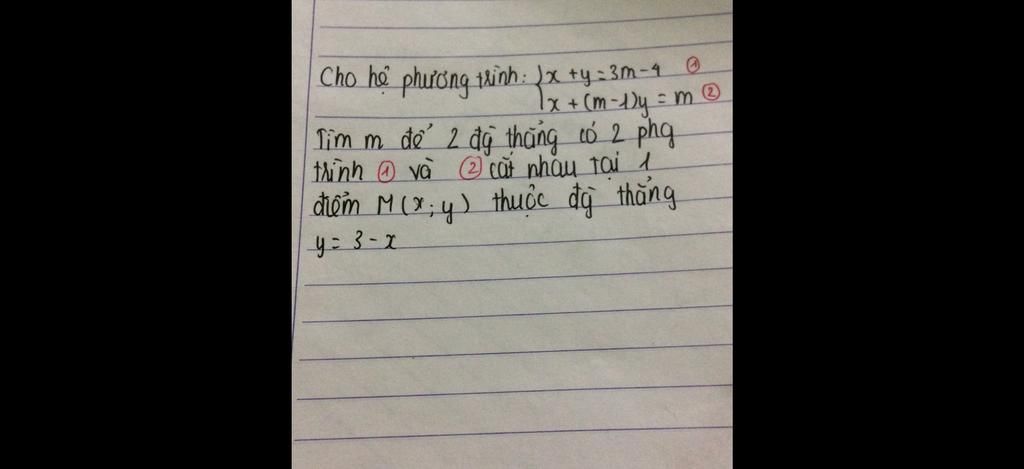 Cho hệ phương trình: { x + y = 3m - 4 ①
x + (m - 1)y = m ②
Tìm m để 2 đg̀ thẳng có 2 phg
trình ① và ② cắt nhau tại 1
điểm M(x; y) thuộc đg̀ thẳng
y = 3 - x